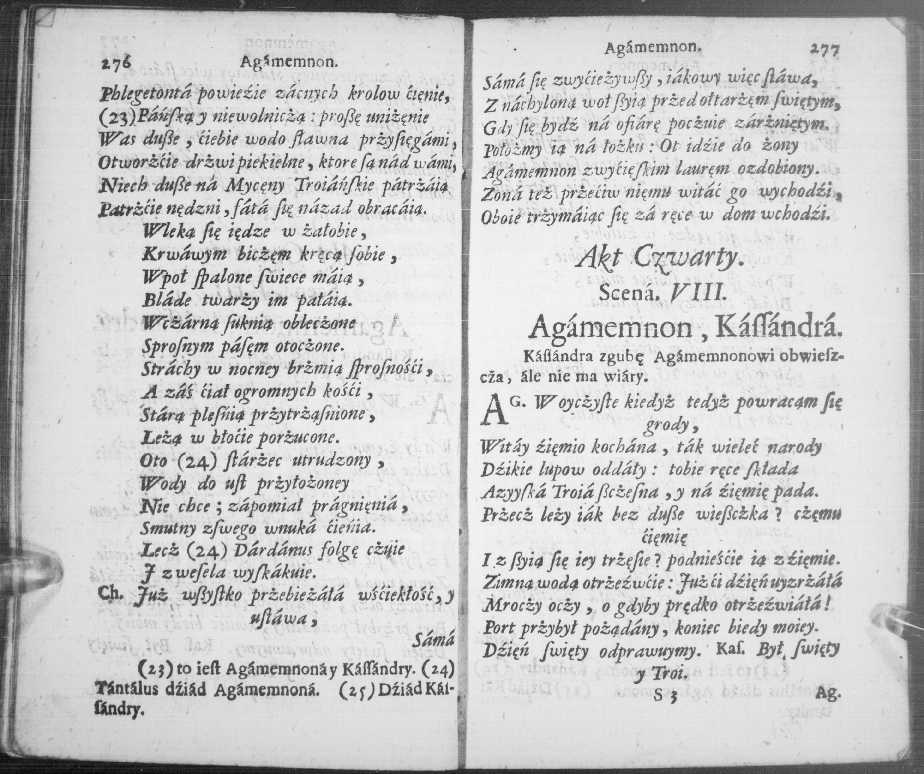 276 Agámemnon.
Phlegetontá powieźie zácnych krolow ćięnie,
(23) Páńſką y niewolniczą : proßę uniżęnie
Was duße , ćiebie wodo ſławna przyſięgámi,
Otworźćie drźwi piekielne, ktore ſą nád wámi,
Niech duße ná Mycęny Troiáńſkie pátrżáią
Patrźćie nędzni , ſátá ſię názad obracáią.
Wleką ſię iędze w żałobie ,
Krwáwym biczęm kręcą ſobie ,
Wpoł ſpalone ſwiece máią ,
Bláde twarży im pałáią.
Wcżárną ſuknią oblecżone
Sproſnym páſęm otocżone.
Stráchy w nocney brżmią ſproſnośći ,
A záś ćiał ogromnych kośći ,
Stárą pleśnią przytrżąſnione ,
Leżą w błoćie porżucone.
Oto (24) ſtárżec utrudzony ,
Wody do uſt przyłożoney
Nie chce ; zápomiał prágnięniá ,
Smutny zſwego wnuká ćieńia.
Lecż (24) Dárdánus folgę cżuie
J z weſela wyſkákuie.
Ch. Już wßyſtko przebieżáłá wśćiekłość, y
uſtáwa ,
Sámá
(23) to ieſt Agámemnoná y Káſſándry. (24)
Tántálus dźiád Agámemnoná. (25) Dźiád Káſ-
ſándry.
Agámemnon. 277
Sámá ſię zwyćieżywßy , iákowy więc ſława,
Z náchyloną woł ßyią przed ołtarżęm ſwiętym,
Gdy ſię bydź ná ofiárę poczuie zárżniętym.
Położmy ią ná łożku : Ot idźie do żony
Agámemnon zwyćięſkim laurem ozdobiony.
Zoná też przećiw nięmu witáć go wychodźi ,
Oboie trżymáiąc ſię zá ręce w dom wchodźi.
Akt Czwarty.
Scená. VIII.
Agámemnon , Káſſándrá.
Káſſándra zgubę Agámemnonowi obwieſz-
cża, ále nie ma wiáry.
AG. W oycżyſte kiedyż tedyż powracam ſię
grody ,
Witáy źięmio kochána , ták wieleć narody
Dźikie lupow oddáły : tobie ręce ſkłada
Azyyſká Troiá ßcżeſna , y ná źięmię pada.
Przecż leży iák bez duße wießcżka ? cżęmu
ćięmię
I z ßyią ſię iey trżęſie ? podnieśćie ią z źięmie.
Zimną wodą otrżeźwćie : Już ći dźięń uyzrżáłá
Mrocży ocży , o gdyby prędko otrżeźwiáłá !
Port przybył pożądány , koniec biedy moiey.
Dźięń ſwięty odprawuymy. Kaſ. Był ſwięty
y Troi.
S 3 Ag.